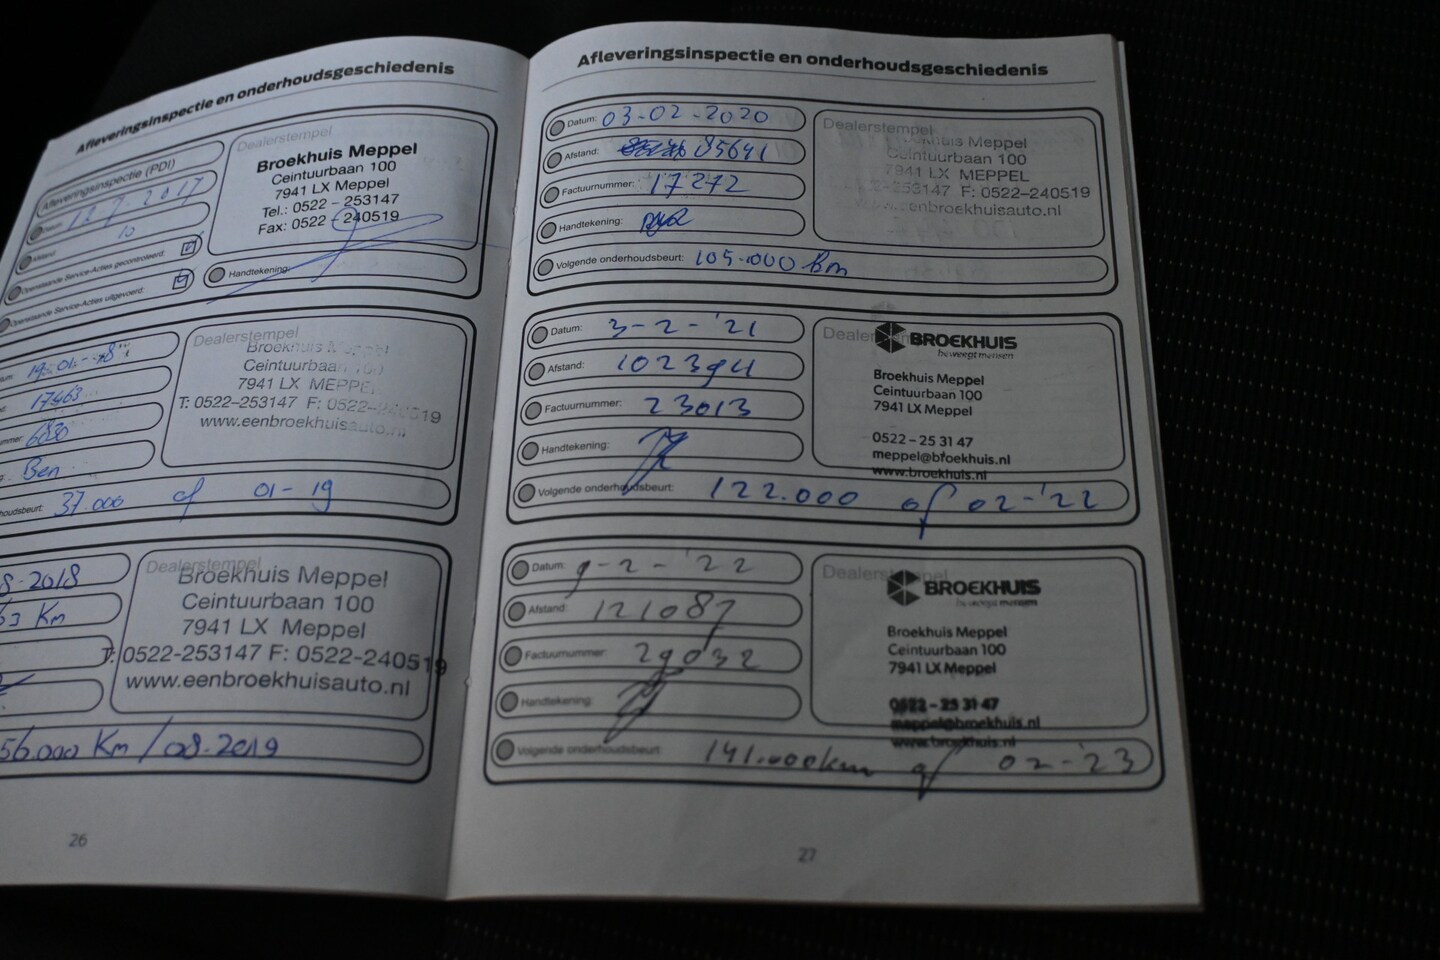 Afleveringsinspectie en onderhoudsgeschiedenis
Afleveringsinspectie (PDI)
Datum: 2017
Afstand: 10
Openstaande Service-Acties gecontroleerd:
Openstaande Service-Acties uitgevoerd:
Dealerstempel
Broekhuis Meppel
Ceintuurbaan 100
7941 LX Meppel
Tel.: 0522 - 253147
Fax: 0522 - 240519
Handtekening:
19-01-18
17463
6830
Ben
37.000 of 01-19
Dealerstempel
Broekhuis Meppel
Ceintuurbaan 100
7941 LX MEPPEL
T: 0522-253147 F: 0522-240519
www.eenbroekhuisauto.nl
8-2018
63 Km
56.000 Km / 08-2019
Dealerstempel
Broekhuis Meppel
Ceintuurbaan 100
7941 LX Meppel
T: 0522-253147 F: 0522-240519
www.eenbroekhuisauto.nl
26
Afleveringsinspectie en onderhoudsgeschiedenis
Datum: 03-02-2020
Afstand: 85641
Factuurnummer: 17272
Handtekening:
Volgende onderhoudsbeurt: 105.000 km
Dealerstempel
Broekhuis Meppel
Ceintuurbaan 100
7941 LX MEPPEL
253147 F: 0522-240519
www.eenbroekhuisauto.nl
Datum: 3-2-'21
Afstand: 102394
Factuurnummer: 23013
Handtekening:
Volgende onderhoudsbeurt: 122.000 of 02-'22
Dealerstempel
BROEKHUIS
beweegt mensen
Broekhuis Meppel
Ceintuurbaan 100
7941 LX Meppel
0522 - 25 31 47
meppel@broekhuis.nl
www.broekhuis.nl
Datum: 9-2-'22
Afstand: 121087
Factuurnummer: 29032
Handtekening:
Volgende onderhoudsbeurt: 141.000km of 02-'23
Dealerstempel
BROEKHUIS
beweegt mensen
Broekhuis Meppel
Ceintuurbaan 100
7941 LX Meppel
0522 - 25 31 47
meppel@broekhuis.nl
www.broekhuis.nl
27